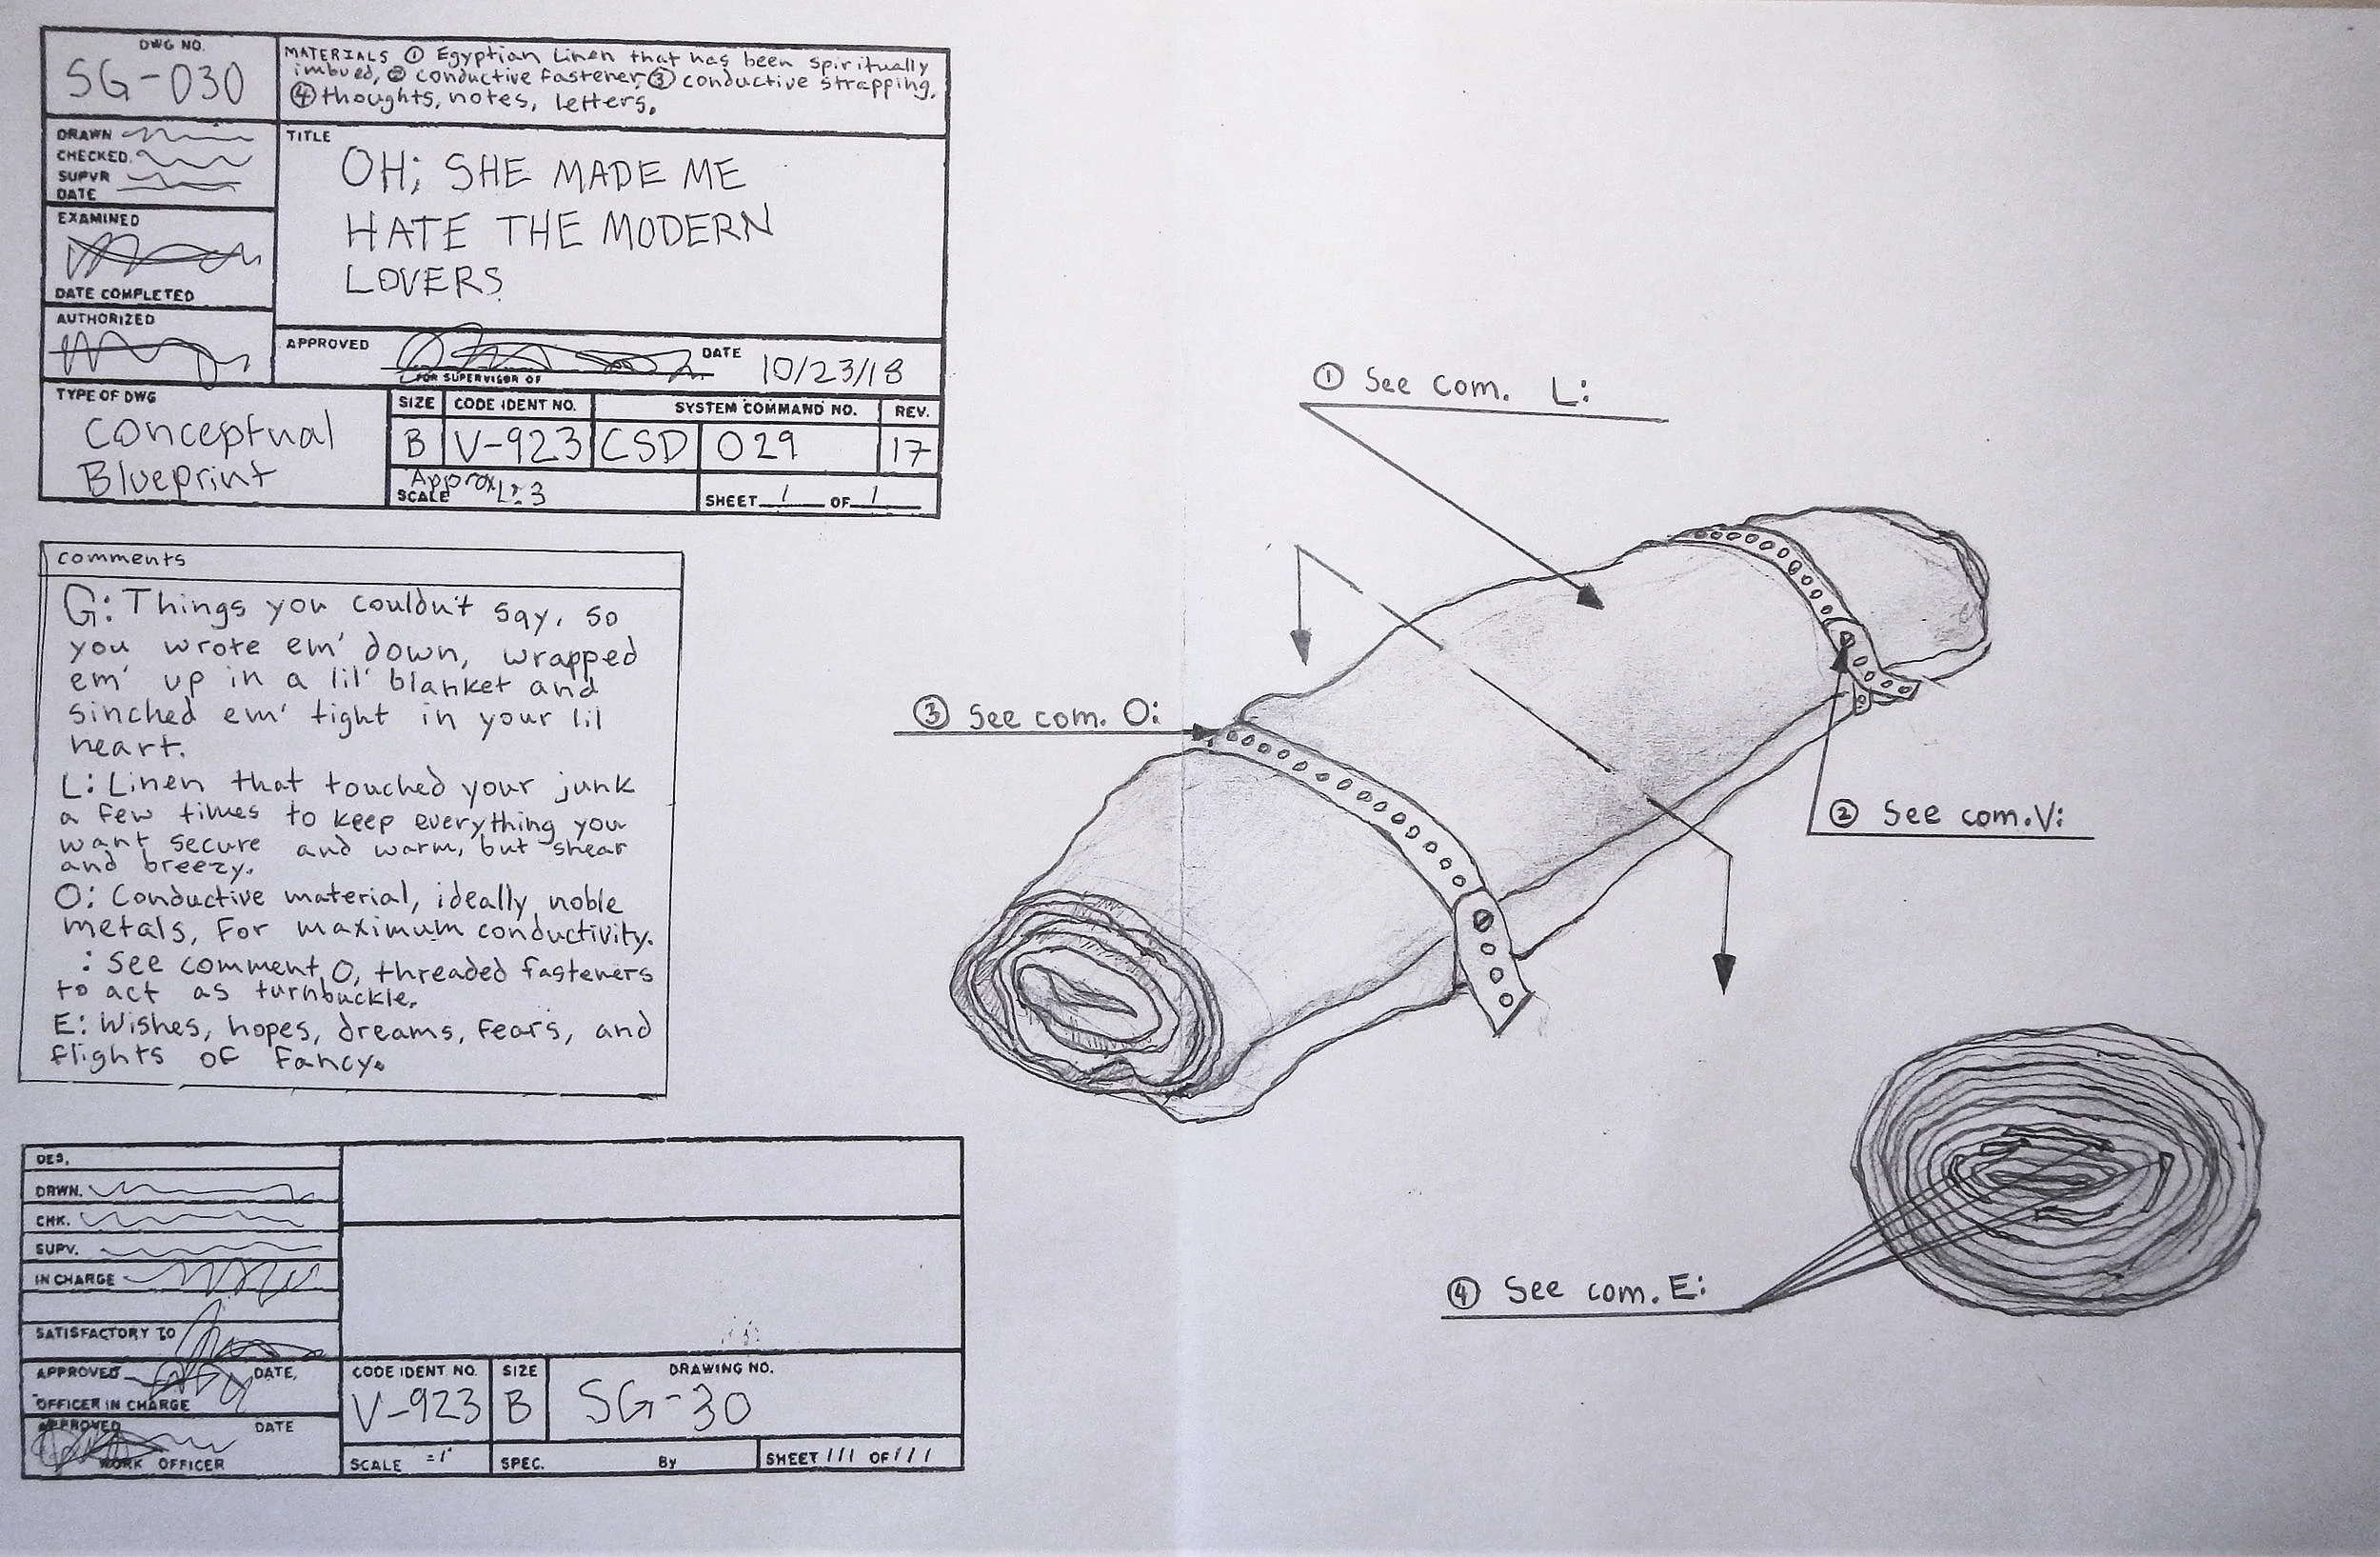 DWG NO.
SG-030
MATERIALS ① Egyptian Linen that has been spiritually
imbued, ② conductive fastener, ③ conductive strapping,
④ thoughts, notes, letters.
DRAWN
CHECKED.
SUPVR
DATE
TITLE
OH; SHE MADE ME
HATE THE MODERN
LOVERS
EXAMINED
DATE COMPLETED
AUTHORIZED
APPROVED
DATE 10/23/18
FOR SUPERVISOR OF
TYPE OF DWG
Conceptual
Blueprint
SIZE CODE IDENT NO. SYSTEM COMMAND NO. REV.
B V-923 CSD 029 17
Approx
SCALE
SHEET 1 OF 1
comments
G: Things you couldn't say, so
you wrote em' down, wrapped
em' up in a lil' blanket and
sinched em' tight in your lil
heart.
L: Linen that touched your junk
a few times to keep everything you
want secure and warm, but shear
and breezy.
O: Conductive material, ideally noble
metals, for maximum conductivity.
: See comment O, threaded fasteners
to act as turnbuckle.
E: Wishes, hopes, dreams, fears, and
flights of fancy.
① See com. L:
③ See com. O:
② See com. V:
④ See com. E:
DES.
DRWN.
CHK.
SUPV.
IN CHARGE
SATISFACTORY TO
APPROVED DATE.
OFFICER IN CHARGE
APPROVED DATE
WORK OFFICER
CODE IDENT NO. SIZE DRAWING NO.
V-923 B SG-30
SCALE =1' SPEC. By SHEET 111 OF 111